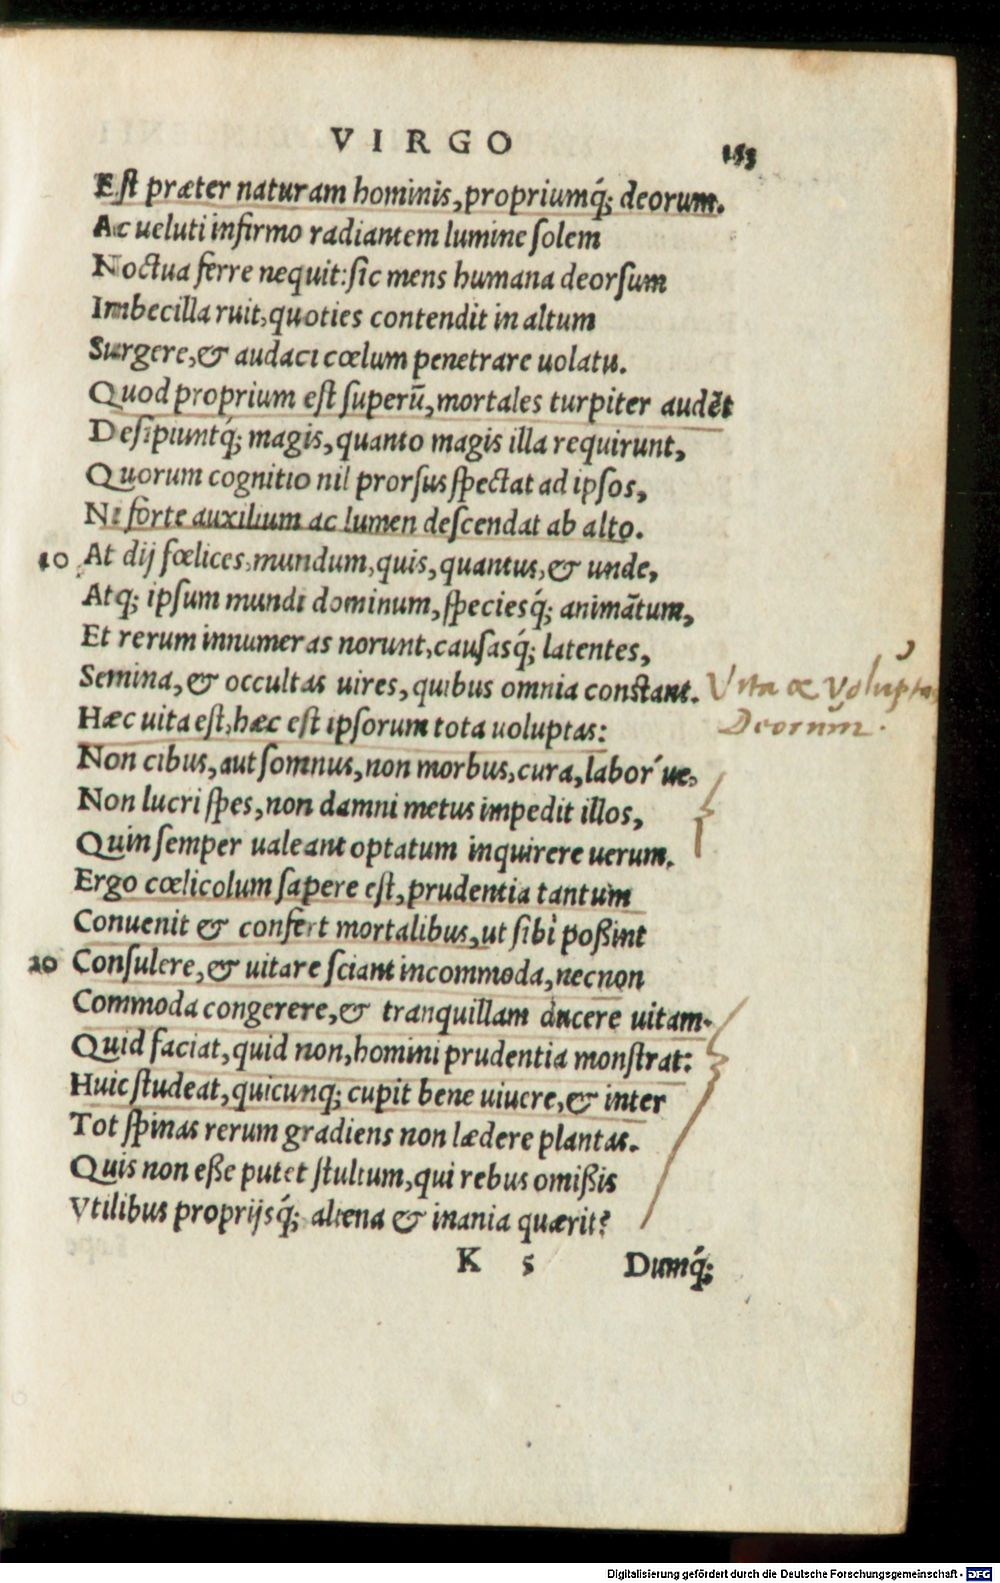 VIRGO 153
Eſt præter naturam hominis, propriumq́; deorum.
Ac ueluti infirmo radiantem lumine ſolem
Noctua ferre nequit: ſic mens humana deorſum
Imbecilla ruit, quoties contendit in altum
Surgere, & audaci cœlum penetrare uolatu.
Quod proprium eſt ſuperū, mortales turpiter audēt
Deſipiuntq́; magis, quanto magis illa requirunt,
Quorum cognitio nil prorſus ſpectat ad ipſos,
Ni forte auxilium ac lumen deſcendat ab alto.
10 At dij fœlices, mundum, quis, quantus, & unde,
Atq; ipſum mundi dominum, ſpeciesq́; animātum,
Et rerum innumeras norunt, cauſasq́; latentes,
Semina, & occultas uires, quibus omnia conſtant.
Vita & Voluptas
Deorum.
Hæc uita eſt, hæc eſt ipſorum tota uoluptas:
Non cibus, aut ſomnus, non morbus, cura, labor´ue,
Non lucri ſpes, non damni metus impedit illos,
Quin ſemper ualeant optatum inquirere uerum.
Ergo cœlicolum ſapere eſt, prudentia tantum
Conuenit & confert mortalibus, ut ſibi poßint
20 Conſulere, & uitare ſciant incommoda, necnon
Commoda congerere, & tranquillam ducere uitam.
Quid faciat, quid non, homini prudentia monſtrat:
Huic ſtudeat, quicunq; cupit bene uiuere, & inter
Tot ſpinas rerum gradiens non lædere plantas.
Quis non eße putet ſtultum, qui rebus omißis
Vtilibus proprijsq́; aliena & inania quærit?
K 5 Dumq́;
Digitalisierung gefördert durch die Deutsche Forschungsgemeinschaft - DFG